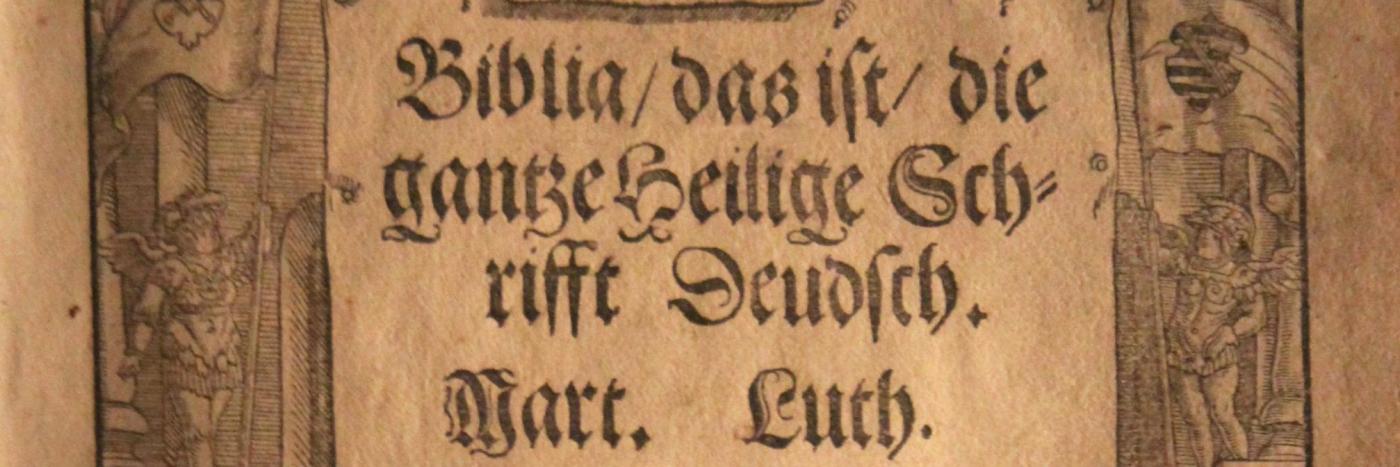 Biblia/ das iſt/ die
gantze Heilige Sch⸗
rifft Deudſch.
Mart. Luth.